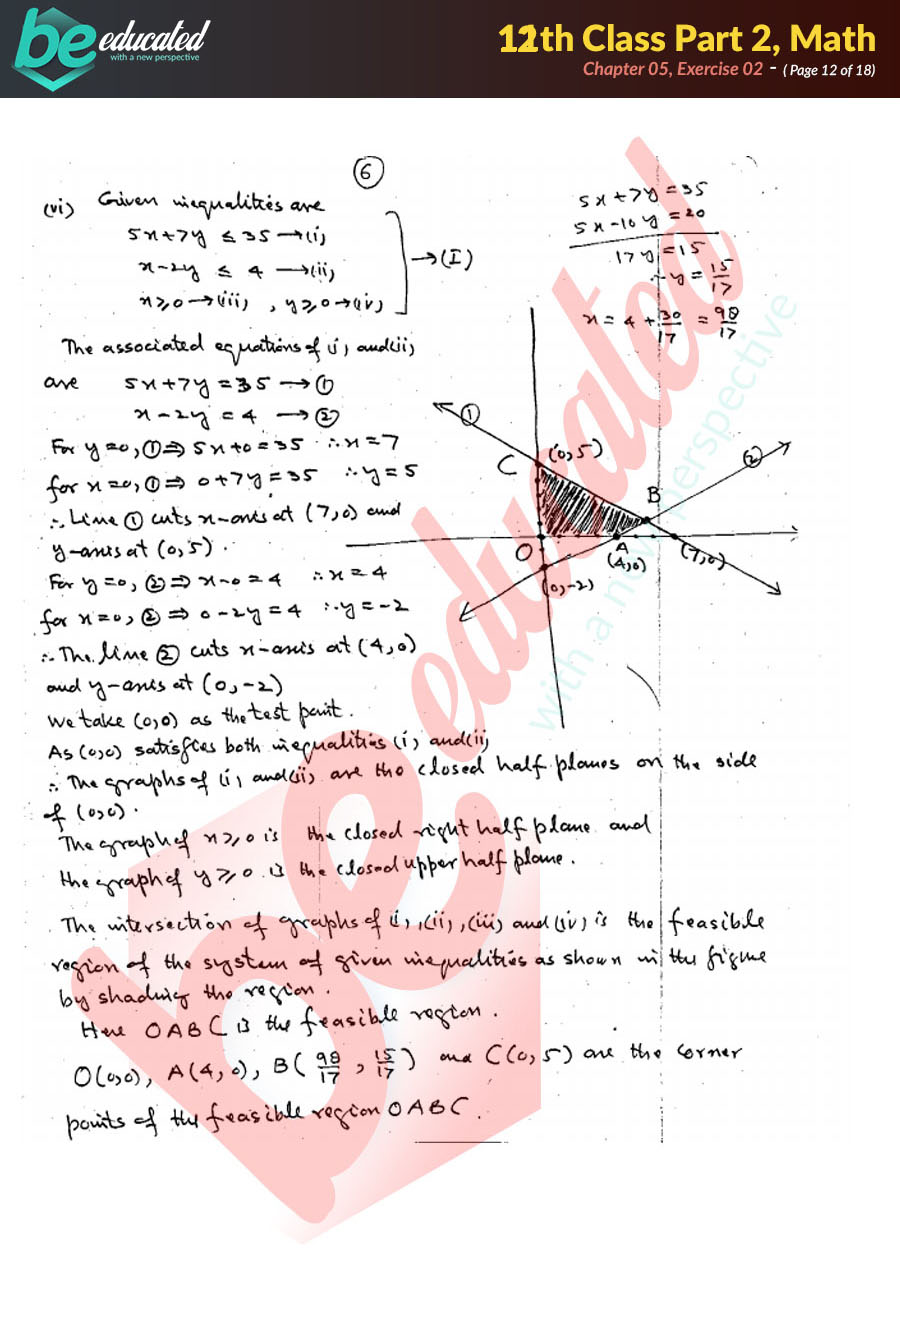 be educated
with a new perspective
12th Class Part 2, Math
Chapter 05, Exercise 02 - ( Page 12 of 18)
6
(vi) Given inequalities are
5x+7y ≤ 35 →(i)
x-2y ≤ 4 →(ii)
x≥0→(iii) , y≥0→(iv)
→(I)
5x+7y = 35
5x-10y = 20
17y = 15
∴ y = 15/17
x = 4 + 30/17 = 98/17
The associated equations of (i) and(ii)
are 5x+7y = 35 → ①
x-2y = 4 → ②
For y=0, ①⇒ 5x+0=35 ∴x=7
for x=0, ①⇒ 0+7y=35 ∴y=5
∴ Line ① cuts x-axis at (7,0) and
y-axis at (0,5).
For y=0, ②⇒ x-0=4 ∴x=4
for x=0, ②⇒ 0-2y=4 ∴y=-2
∴ The line ② cuts x-axis at (4,0)
and y-axis at (0,-2)
We take (0,0) as the test point.
As (0,0) satisfies both inequalities (i) and(ii)
∴ The graphs of (i) and(ii) are the closed half planes on the side
of (0,0).
The graph of x≥0 is the closed right half plane and
the graph of y≥0 is the closed upper half plane.
The intersection of graphs of (i),(ii),(iii) and (iv) is the feasible
region of the system of given inequalities as shown in the figure
by shading the region.
Here OABC is the feasible region.
O(0,0), A(4,0), B(98/17, 15/17) and C(0,5) are the corner
points of the feasible region OABC.
①
②
C
(0,5)
B
O
A
(4,0)
(7,0)
(0,-2)
be educated
with a new perspective